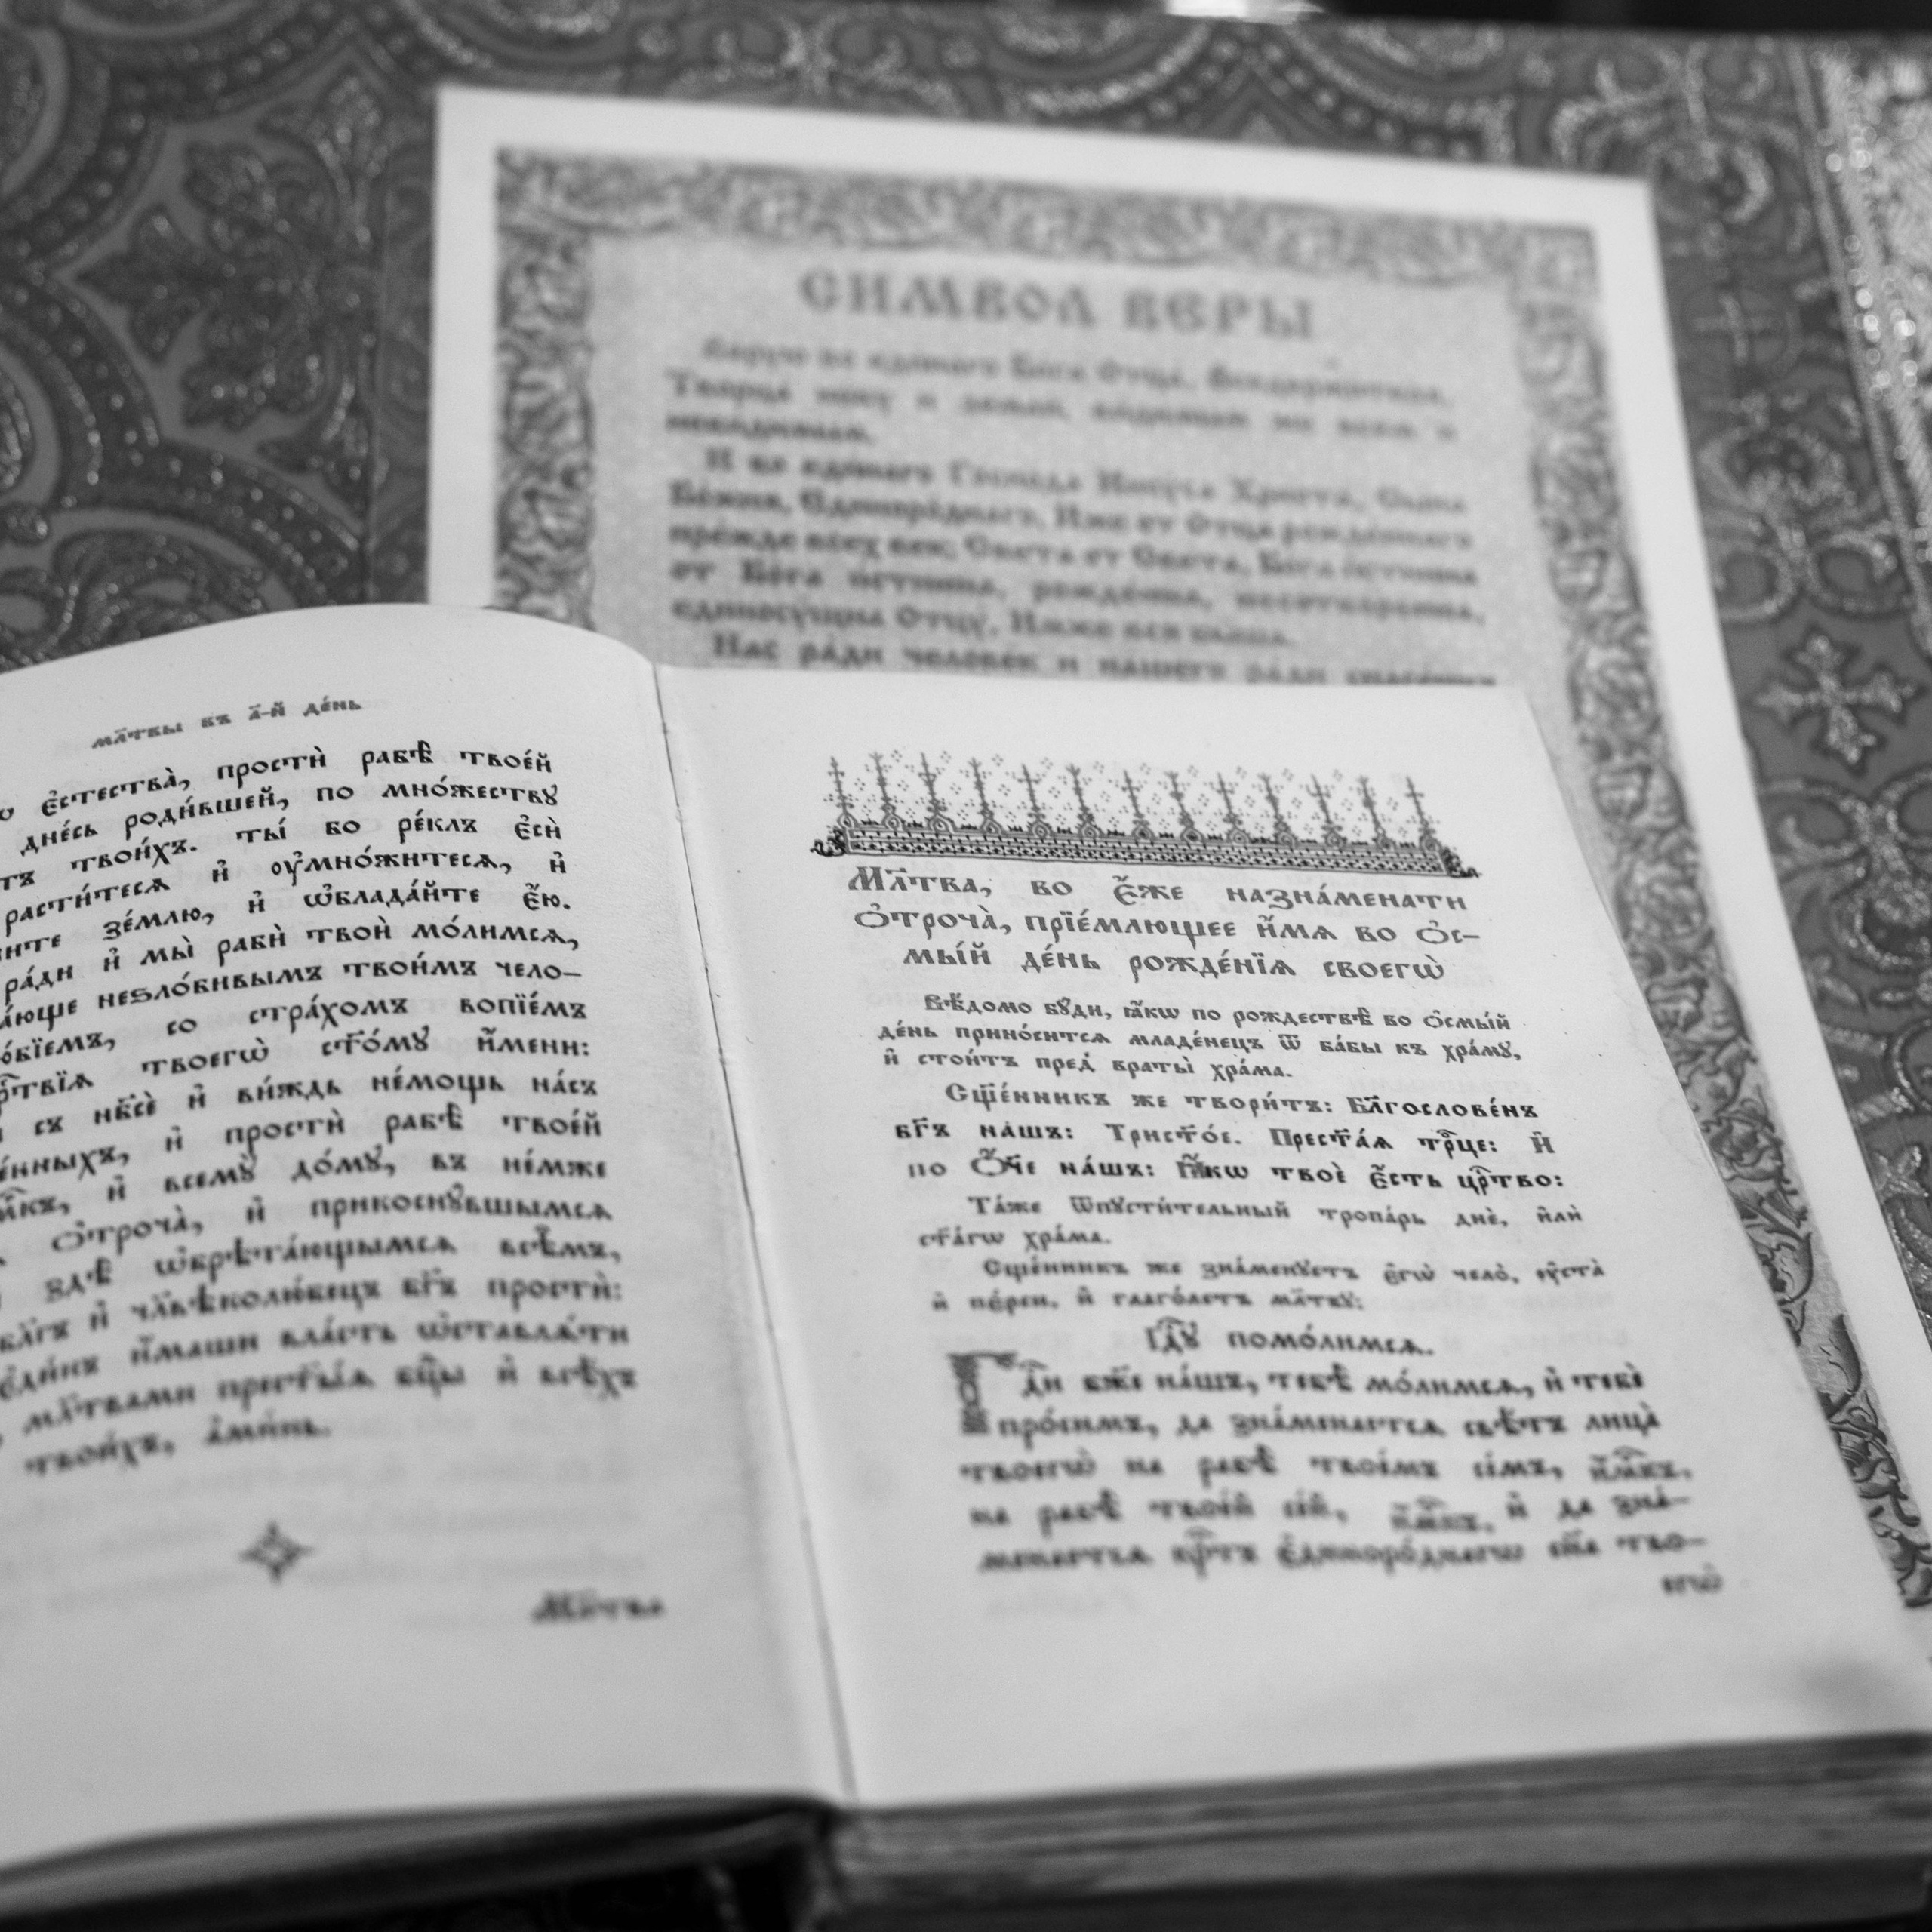 СИМВОЛ ВЕРЫ
Верую во единаго Бога Отца, Вседержителя,
Творца небу и земли, видимым же всем и
невидимым.
И во единаго Господа Иисуса Христа, Сына
Бо́жия, Единоро́днаго, Иже от Отца рожде́ннаго
пре́жде всех век; Света от Света, Бо́га и́стинна
от Бо́га и́стинна, рожде́нна, несотворенна,
единосу́щна Отцу́, Имже вся быша.
Нас ра́ди челове́к и нашего ра́ди спасе́ния
мл҃твы въ а҃-й де́нь
є҆стества̀, простѝ рабѣ̀ твое́й
дне́сь роди́вшей, по мно́жествꙋ
твои́хъ. ты́ бо ре́клъ є҆сѝ
расти́теся и҆ ᲂу҆мно́житеся, и҆
зе́млю, и҆ ѡ҆блада́йте є҆́ю.
ра́ди и҆ мы̀ рабѝ твоѝ мо́лимся,
неѕло́бивымъ твои́мъ чело-
со стра́хомъ вопїе́мъ
твоегѡ̀ ст҃о́мꙋ и҆́мени:
съ нб҃сѐ и҆ ви́ждь не́мощь на́съ
и҆ простѝ рабѣ̀ твое́й
и҆ всемꙋ̀ до́мꙋ, въ не́мже
ѻ҆троча̀, и҆ прикоснꙋ́вшымся
здѣ̀ ѡ҆брѣта́ющымся всѣ̑мъ,
бл҃гъ и҆ чл҃вѣколю́бецъ бг҃ъ простѝ:
є҆ди́нъ и҆́маши вла́сть ѡ҆ставлѧ́ти
мл҃твами прест҃ы́ѧ бц҃ы и҆ всѣ́хъ
твои́хъ, а҆ми́нь.
Мл҃тва
Мл҃тва, во є҆́же назна́менати
ѻ҆троча̀, прїе́млющее и҆́мѧ во ѻ҆с-
мы́й де́нь рожде́нїѧ своегѡ̀
Вѣ́домо бꙋ́ди, ꙗ҆́кѡ по рождествѣ̀ во ѻ҆смы́й
де́нь прино́ситсѧ младе́нецъ ѿ ба́бы къ хра́мꙋ,
и҆ стои́тъ пред̾ враты̀ хра́ма.
Сщ҃е́нникъ же твори́тъ: Бл҃гослове́нъ
бг҃ъ на́шъ: Трист҃о́е. Прест҃а́ѧ трⷪ҇це: И҆
по Ѻ҆́ч҃е на́шъ: Ꙗ҆́кѡ твоѐ є҆́сть црⷭ҇тво:
Та́же ѿпꙋсти́тельный тропа́рь днѐ, и҆лѝ
ст҃а́гѡ хра́ма.
Сщ҃е́нникъ же зна́менꙋетъ є҆гѡ̀ чело̀, ᲂу҆ста̀
и҆ пе́рси, и҆ глаго́летъ мл҃твꙋ:
Гдⷭ҇ꙋ помо́лимсѧ.
Гдⷭ҇и бж҃е на́шъ, тебѣ̀ мо́лимсѧ, и҆ тебѐ
про́симъ, да зна́менаетсѧ свѣ́тъ лица̀
твоегѡ̀ на рабѣ̀ твое́мъ се́мъ, и҆м҃къ,
на рабѣ̀ твое́й се́й, и҆м҃къ, и҆ да зна́-
менаетсѧ крⷭ҇тъ є҆диноро́днагѡ сн҃а тво-
егѡ̀